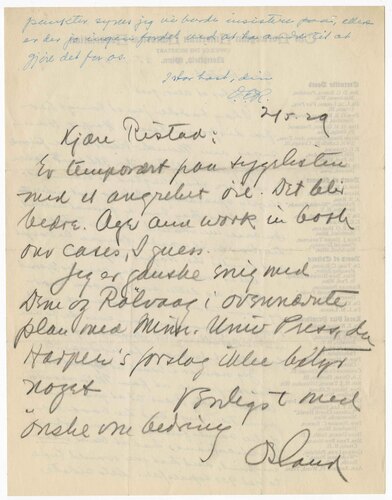 punkter, synes jeg vi burde insistere paa, ellers
er der jo ingen fordel ved at ha andre til at
gjøre det for os.
I stor hast, din
O.E.R.
2/5. 29
Kjære Ristad:
Er temporært paa sygelisten
med et angrebet øie. Det blir
bedre. Age and work in both
our cases, I guess.
Jeg er ganske enig med
Dem og Rölvaag i ovennævnte
plan med Minn. Univ Press, da
Harper's forslag ikke betyr
noget
Venligst med
ønske om bedring